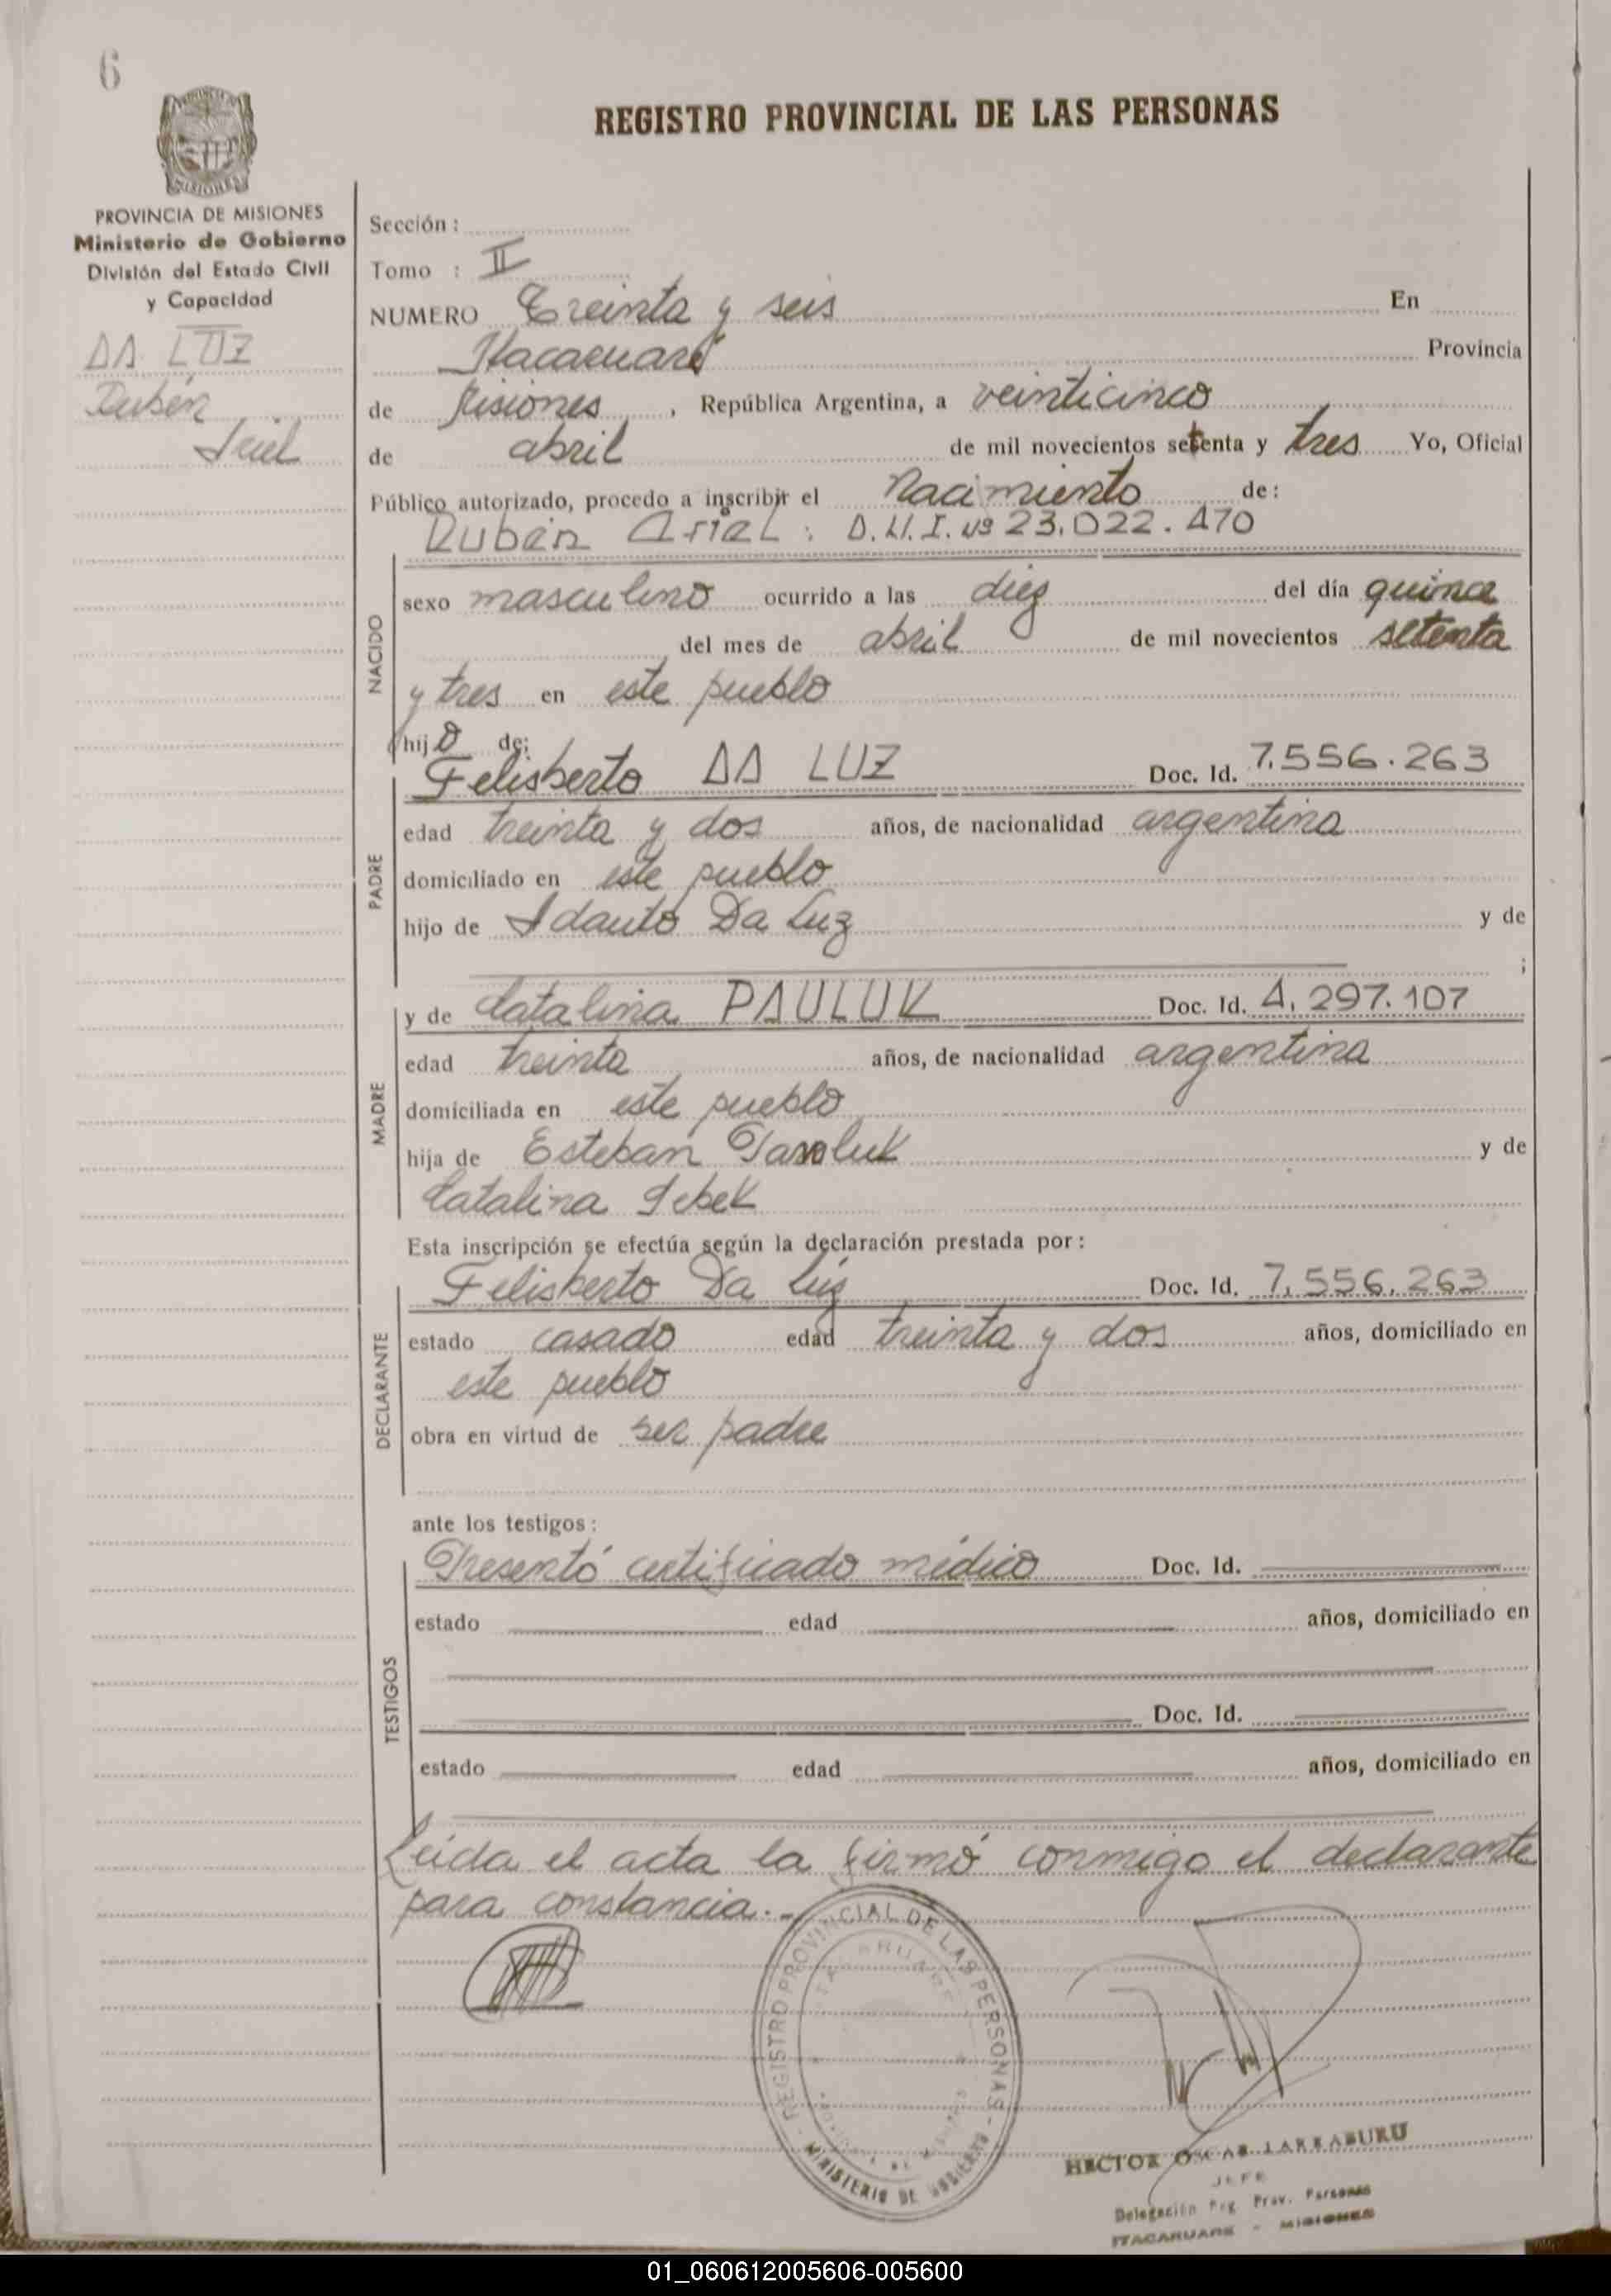 6
REGISTRO PROVINCIAL DE LAS PERSONAS
MISIONES
PROVINCIA DE MISIONES
Ministerio de Gobierno
División del Estado Civil
y Capacidad
DA LUZ
Rubén
Ariel
Sección :
Tomo : II
NUMERO Treinta y seis En
Itacaruaré Provincia
de Misiones , República Argentina, a veinticinco
de abril de mil novecientos setenta y tres Yo, Oficial
Público autorizado, procedo a inscribir el Nacimiento de:
Rubén Ariel : D.N.I. Nº 23.022.470
NACIDO
sexo masculino ocurrido a las diez del día quince
del mes de abril de mil novecientos setenta
y tres en este pueblo
hijo de:
PADRE
Felisberto DA LUZ Doc. Id. 7.556.263
edad treinta y dos años, de nacionalidad argentina
domiciliado en este pueblo
hijo de Adauto Da Luz y de
;
MADRE
y de Catalina PAULUK Doc. Id. 4.297.107
edad treinta años, de nacionalidad argentina
domiciliada en este pueblo
hija de Esteban y de
Catalina
Esta inscripción se efectúa según la declaración prestada por:
DECLARANTE
Felisberto Da Luz Doc. Id. 7.556.263
estado casado edad treinta y dos años, domiciliado en
este pueblo
obra en virtud de ser padre
ante los testigos:
TESTIGOS
Presentó certificado médico Doc. Id.
estado edad años, domiciliado en
Doc. Id.
estado edad años, domiciliado en
Leída el acta la firmó conmigo el declarante
para constancia.-
REGISTRO PROVINCIAL DE LAS PERSONAS
MINISTERIO DE GOBIERNO
HECTOR OSCAR LARRABURU
JEFE
Delegación Reg. Prov. Personas
ITACARUARE - MISIONES
01_060612005606-005600